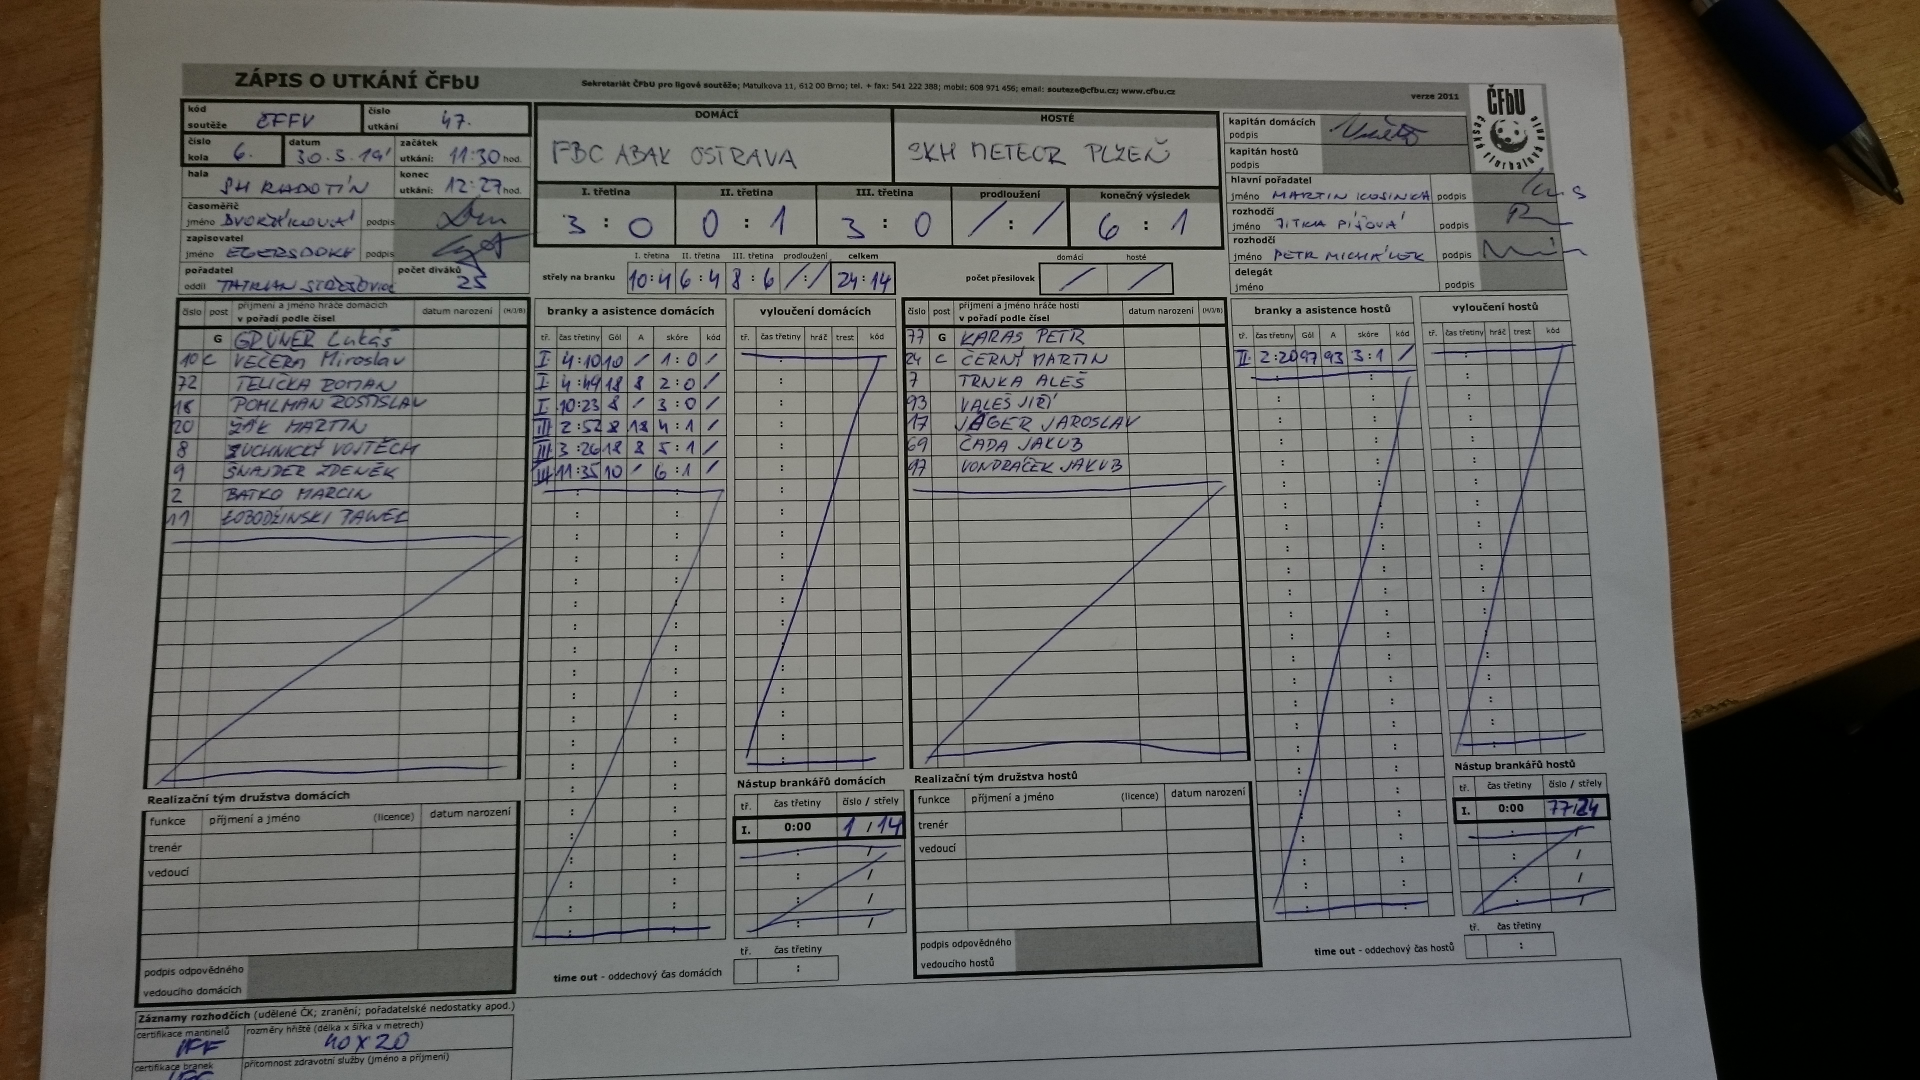 ZÁPIS O UTKÁNÍ ČFbU
Sekretariát ČFbU pro ligové soutěže; Matulkova 11, 612 00 Brno; tel. + fax: 541 222 388; mobil: 608 971 456; email: souteze@cfbu.cz; www.cfbu.cz
verze 2011
ČFbU
kód soutěže ČFFV číslo utkání 47.
číslo kola 6. datum 30.3.19' začátek utkání: 11:30 hod.
hala SH RADOTÍN konec utkání: 12:27 hod.
časoměřič jméno DVOŘÁKOVÁ podpis
zapisovatel jméno podpis
pořadatel oddíl TATRAN počet diváků 25
DOMÁCÍ HOSTÉ
FBC ABAK OSTRAVA SKH METEOR PLZEŇ
I. třetina II. třetina III. třetina prodloužení konečný výsledek
3 : 0 0 : 1 3 : 0 / : / 6 : 1
I. třetina II. třetina III. třetina prodloužení celkem
střely na branku 10:4 6:4 8:6 /:/ 24:14
počet přesilovek domácí / hosté /
kapitán domácích podpis
kapitán hostů podpis
hlavní pořadatel
jméno MARTIN KOSINKA podpis
rozhodčí
jméno JITKA PÍŠOVÁ podpis
rozhodčí
jméno PETR MICHÁLEK podpis
delegát
jméno podpis
číslo post příjmení a jméno hráče domácích v pořadí podle čísel datum narození (M/J/B)
G GRÜNER Lukáš
10 C VEČEŘA Miroslav
72 TELIČKA ROMAN
18 POHLMAN ROSTISLAV
20 ŽÁK MARTIN
8 ŽUCHNICKÝ VOJTĚCH
9 ŠNAJDER ZDENĚK
2 BATKO MARCIN
11 ŁOBODZINSKI PAWEŁ
branky a asistence domácích
tř. čas třetiny Gól A skóre kód
I 4:10 10 / 1:0 /
I 4:49 18 8 2:0 /
I 10:23 8 / 3:0 /
III 2:52 8 18 4:1 /
III 3:26 18 8 5:1 /
III 11:35 10 / 6:1 /
vyloučení domácích
tř. čas třetiny hráč trest kód
číslo post příjmení a jméno hráče hostí v pořadí podle čísel datum narození (M/J/B)
77 G KARAS PETR
24 C ČERNÝ MARTIN
7 TRNKA ALEŠ
93 VALEŠ JIŘÍ
17 JÄGER JAROSLAV
69 ČADA JAKUB
97 VONDRÁČEK JAKUB
branky a asistence hostů
tř. čas třetiny Gól A skóre kód
II 2:20 97 93 3:1 /
vyloučení hostů
tř. čas třetiny hráč trest kód
Realizační tým družstva domácích
funkce příjmení a jméno (licence) datum narození
trenér
vedoucí
podpis odpovědného vedoucího domácích
Nástup brankářů domácích
tř. čas třetiny číslo / střely
I. 0:00 1 / 14
time out - oddechový čas domácích
tř. čas třetiny
Realizační tým družstva hostů
funkce příjmení a jméno (licence) datum narození
trenér
vedoucí
podpis odpovědného vedoucího hostů
Nástup brankářů hostů
tř. čas třetiny číslo / střely
I. 0:00 77/24
time out - oddechový čas hostů
tř. čas třetiny
Záznamy rozhodčích (udělené ČK; zranění; pořadatelské nedostatky apod.)
certifikace mantinelů IFF rozměry hřiště (délka x šířka v metrech) 40 X 20
certifikace branek přítomnost zdravotní služby (jméno a příjmení)